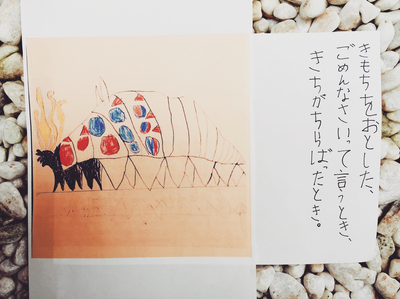 きもちをおとした、
ごめんなさいって言うとき、
きもちがちらばったとき。